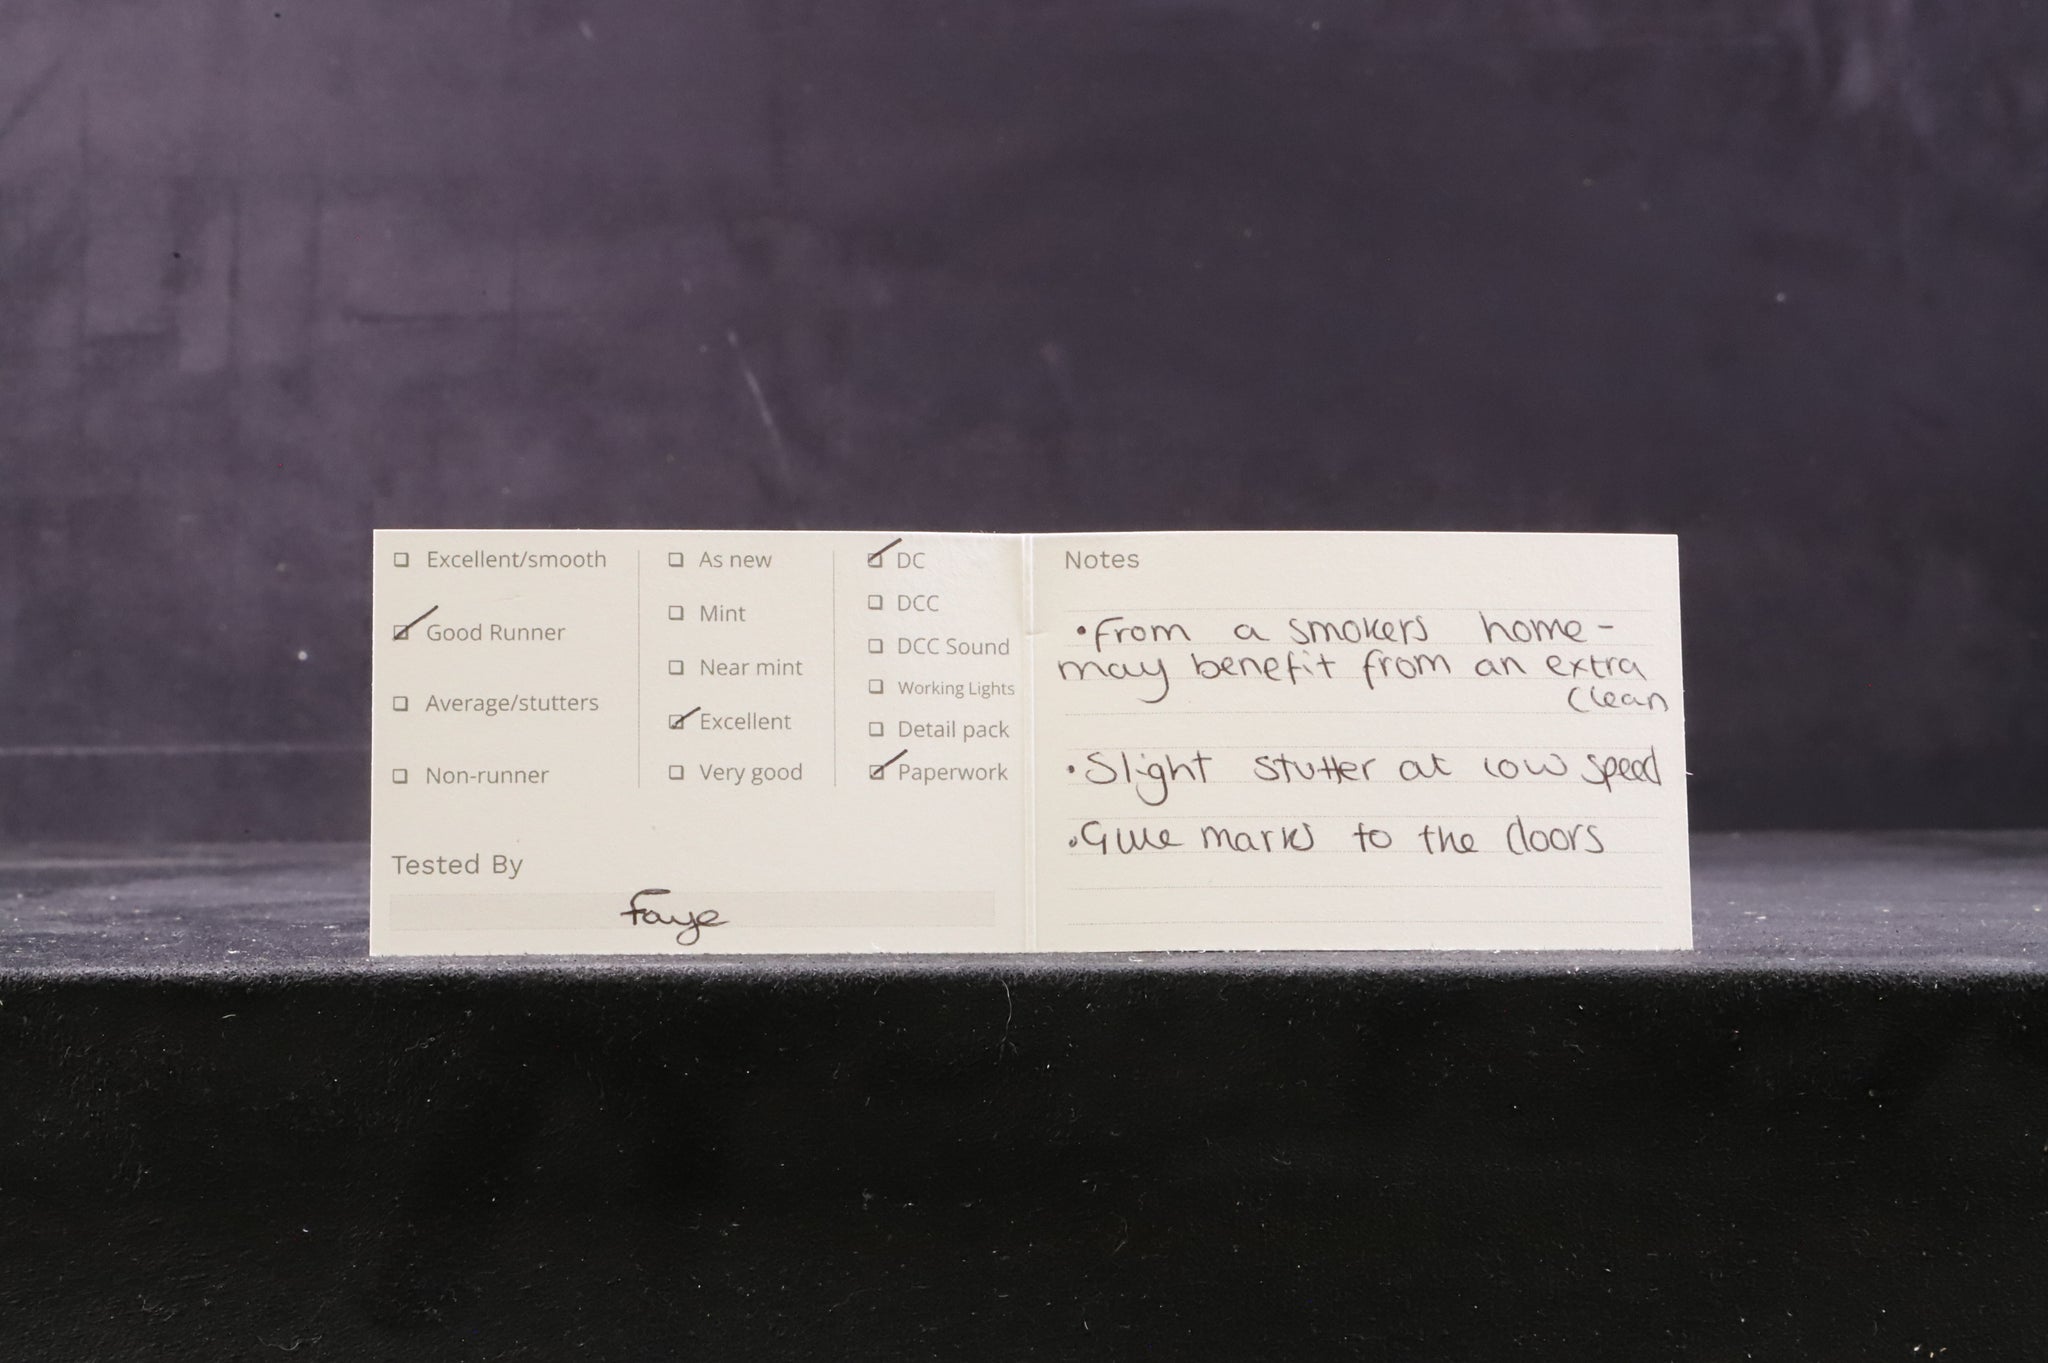 Excellent/smooth
Good Runner
Average/stutters
Non-runner
As new
Mint
Near mint
Excellent
Very good
DC
DCC
DCC Sound
Working Lights
Detail pack
Paperwork
Tested By
Faye
Notes
• From a smokers home -
may benefit from an extra
clean
• Slight stutter at low speed
• Glue marks to the doors